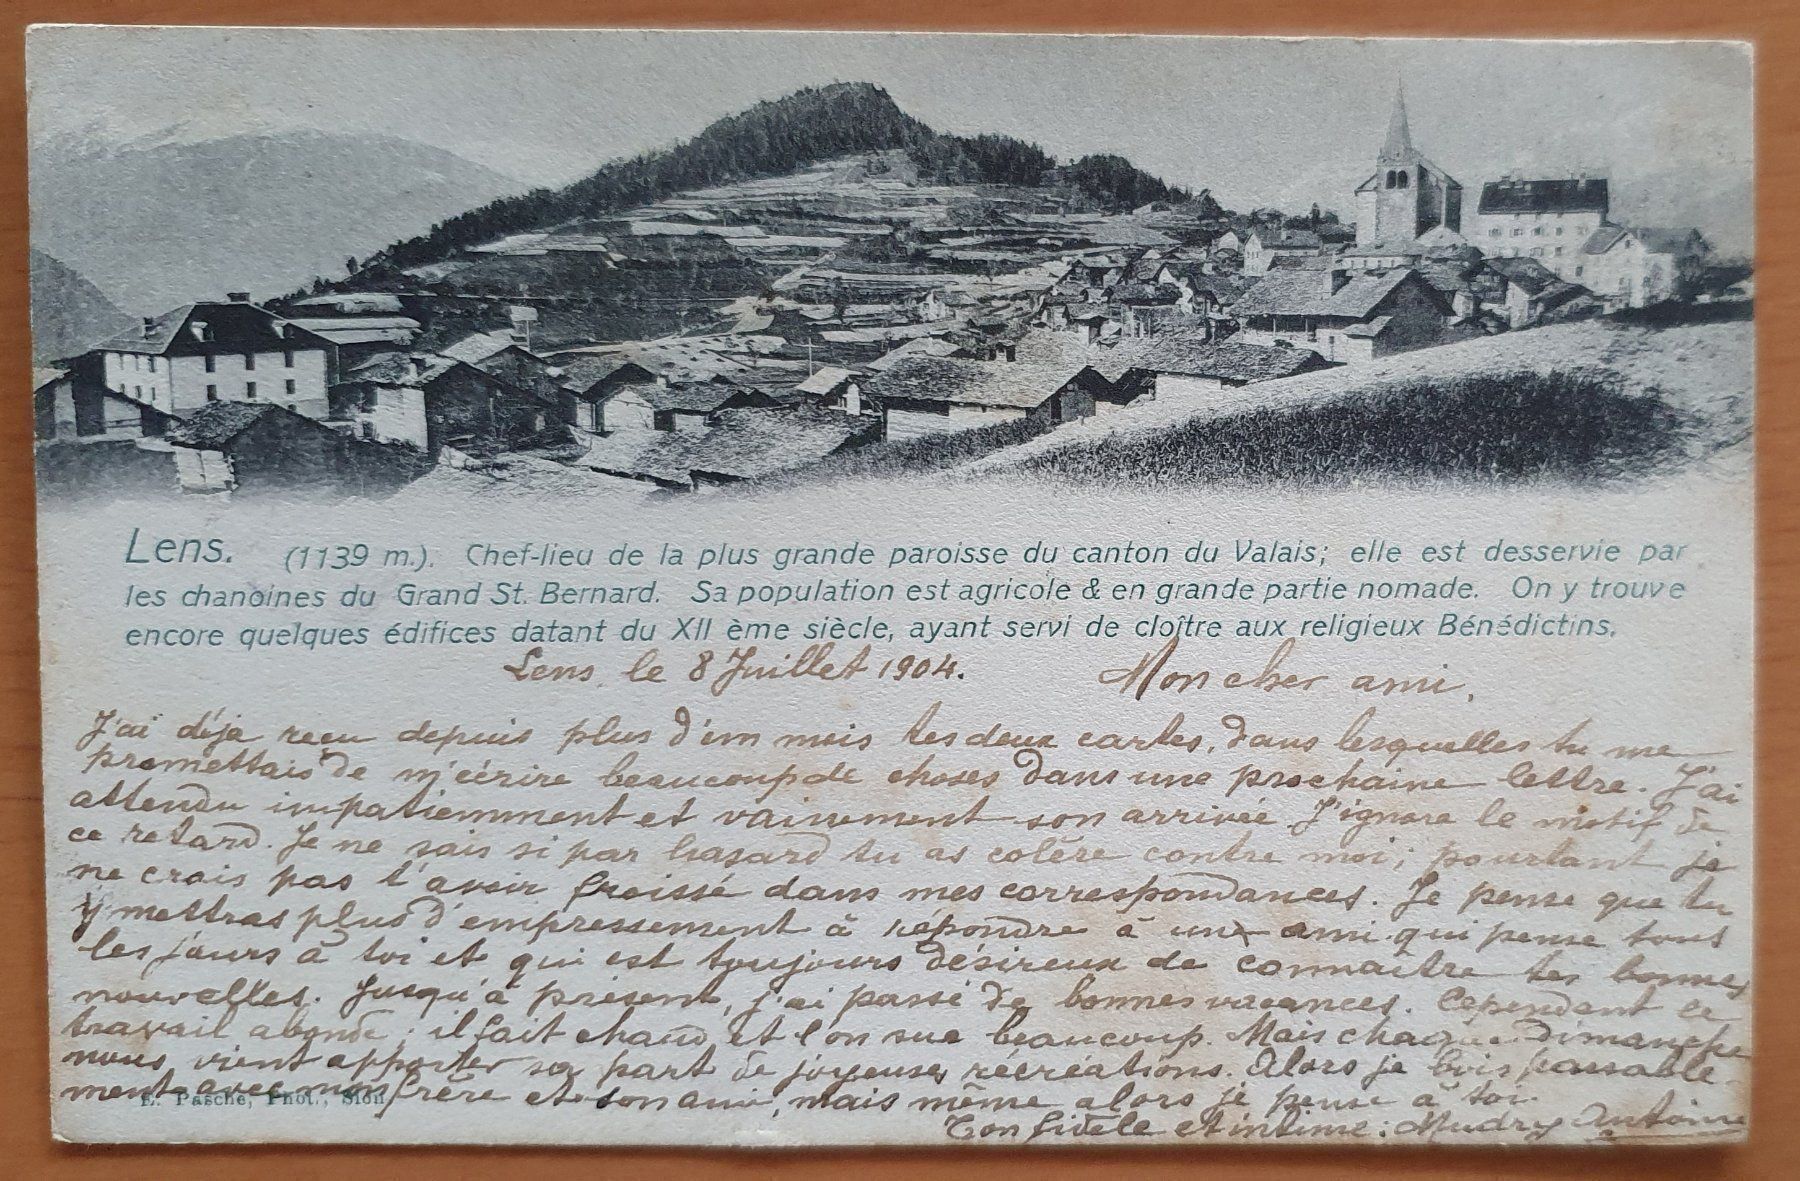 Lens. (1139 m.). Chef-lieu de la plus grande paroisse du canton du Valais; elle est desservie par
les chanoines du Grand St. Bernard. Sa population est agricole & en grande partie nomade. On y trouve
encore quelques édifices datant du XII ème siècle, ayant servi de cloître aux religieux Bénédictins.
Lens, le 8 Juillet 1904. Mon cher ami,
J'ai déja reçu depuis plus d'un mois tes deux cartes, dans lesquelles tu me
promettais de m'écrire beaucoup de choses dans une prochaine lettre. J'ai
attendu impatiemment et vainement son arrivée. J'ignore le motif de
ce retard. Je ne sais si par hasard tu as colère contre moi; pourtant je
ne crois pas t'avoir froissé dans mes correspondances. Je pense que tu
y mettras plus d'empressement à répondre à un ami qui pense tous
les jours à toi et qui est toujours désireux de connaître tes bonnes
nouvelles. Jusqu'à présent, j'ai passé de bonnes vacances. Cependant le
travail abonde; il fait chaud, et l'on sue beaucoup. Mais chaque Dimanche
nous vient apporter sa part de joyeuses récréations. Alors je bois passable-
ment avec mon frère et son ami, mais même alors je pense à toi.
E. Pasche, Phot., Sion.
Ton fidèle et intime: Mudry Antoine